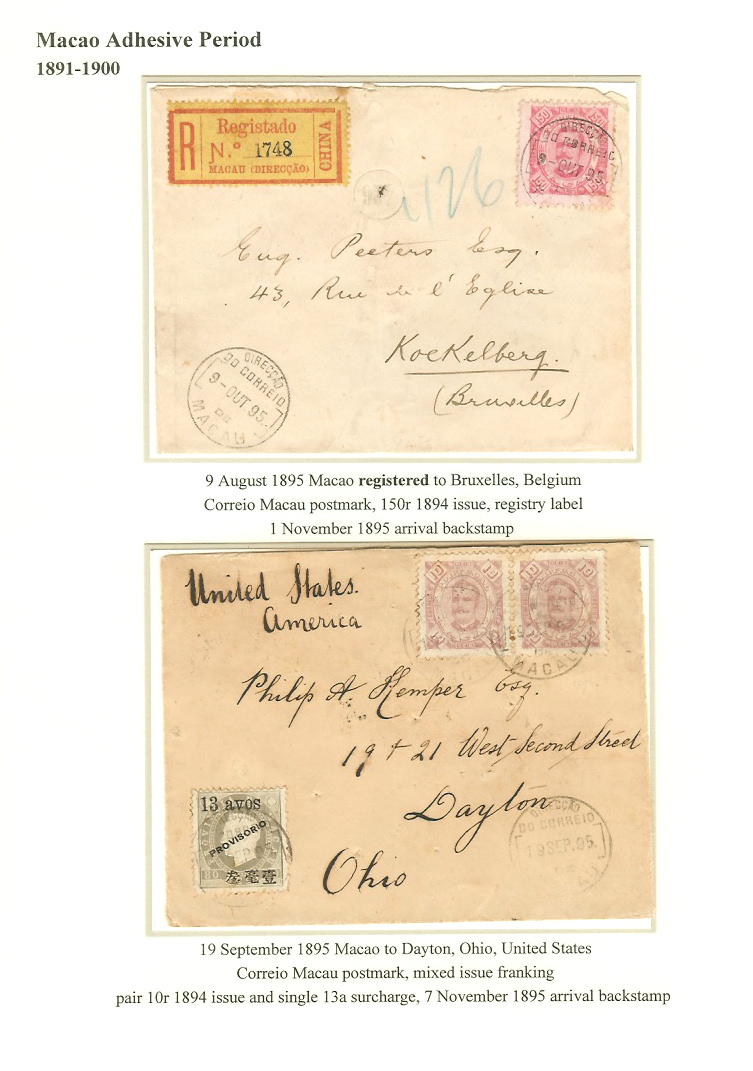 Macao Adhesive Period
1891-1900
Registado
R N.º 1748
MACAU (DIRECÇÃO)
CHINA
150 150
150 150
DIRECÇÃO
DO CORREIO
9-OUT 95
1126
Eug. Peeters Esq.
43, Rue de l'Eglise
Koekelberg.
(Bruxelles)
DIRECÇÃO
DO CORREIO
9-OUT 95.
DE
MACAU
9 August 1895 Macao registered to Bruxelles, Belgium
Correio Macau postmark, 150r 1894 issue, registry label
1 November 1895 arrival backstamp
10 10 10 10
MACAU
United States.
America
Philip A. Kemper Esq.
19 + 21 West Second Street
Dayton
Ohio
13 avos
PROVISORIO
80
壹毫叁
DIRECÇÃO
DO CORREIO
19 SEP. 95.
DE
19 September 1895 Macao to Dayton, Ohio, United States
Correio Macau postmark, mixed issue franking
pair 10r 1894 issue and single 13a surcharge, 7 November 1895 arrival backstamp